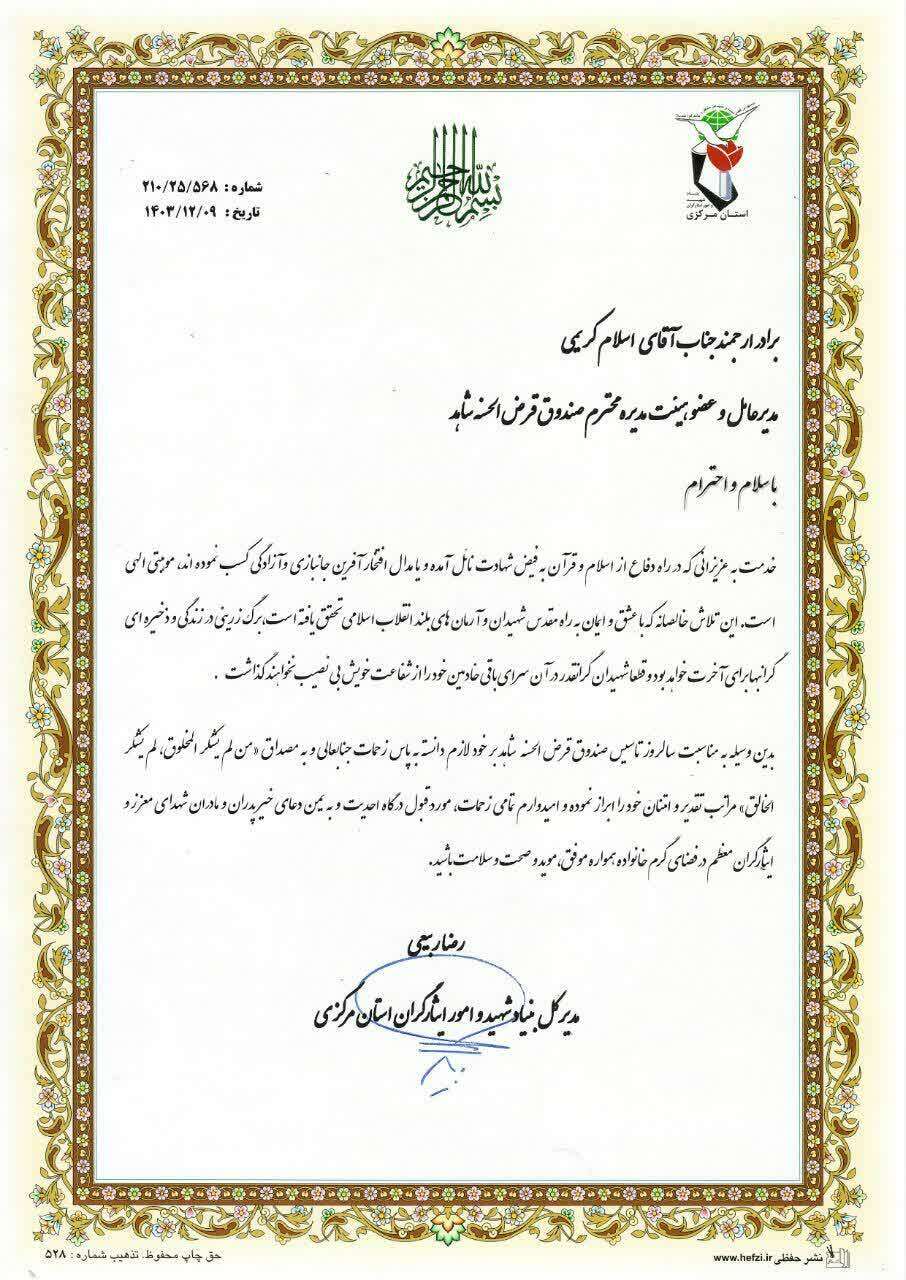 بسم الله الرحمن الرحیم
استان مرکزی
شماره : ۲۱۰/۲۵/۵۶۸
تاریخ : ۱۴۰۳/۱۲/۰۹
برادر ارجمند جناب آقای اسلام کریمی
مدیرعامل و عضو هیئت مدیره محترم صندوق قرض الحسنه شاهد
با سلام و احترام
خدمت به عزیزانی که در راه دفاع از اسلام و قرآن به فیض شهادت نائل آمده و یا مدال افتخار آفرین جانبازی و آزادگی کسب نموده اند، موهبتی الهی
است. این تلاش خالصانه که با عشق و ایمان به راه مقدس شهیدان و آرمان های بلند انقلاب اسلامی تحقق یافته است، برگ زرینی در زندگی و ذخیره ای
گرانبها برای آخرت خواهد بود و قطعا شهیدان گرانقدر در آن سرای باقی خادمین خود را از شفاعت خویش بی نصیب نخواهند گذاشت .
بدین وسیله به مناسبت سالروز تاسیس صندوق قرض الحسنه شاهد بر خود لازم دانسته به پاس زحمات جنابعالی و به مصداق «من لم یشکر المخلوق، لم یشکر
الخالق» مراتب تقدیر و امتنان خود را ابراز نموده و امیدوارم تمامی زحمات، مورد قبول درگاه احدیت و به یمن دعای خیر پدران و مادران شهدای معزز و
ایثارگران معظم در فضای گرم خانواده همواره موفق، موید و صحت و سلامت باشید.
رضا ربیعی
مدیر کل بنیاد شهید و امور ایثارگران استان مرکزی
نشر حفظی www.hefzi.ir
حق چاپ محفوظ. تذهیب شماره : ۵۲۸